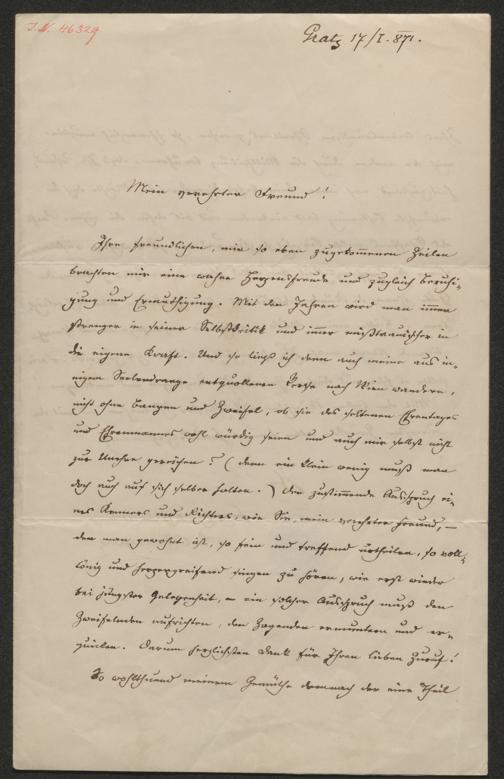 I.N. 46329
Gratz 17/I. 871.
Mein verehrter Freund!
Ihre freundlichen, mir so eben zugekommenen Zeilen
brachten mir eine wahre Herzensfreude und zugleich Beruhi-
gung und Ermuthigung. Mit den Jahren wird man immer
strenger in seiner Selbstkritik und immer mißtrauischer in
die eigene Kraft. Und so ließ ich denn auch meine aus in-
nigem Seelendrange entquollenen Verse nach Wien wandern,
nicht ohne Bangen und Zweifel, ob sie des seltenen Ehrentages
und Ehrenmannes wohl würdig seien und auch mir selbst nicht
zur Unehre gereichen? (denn ein klein wenig muß man
doch auch auf sich selber halten.) Der zustimmende Ausspruch ei-
nes Kenners und Richters, wie Sie, mein verehrter Freund, —
den man gewohnt ist, so fein und treffend urtheilen, so voll-
tönig und herzergreifend singen zu hören, wie erst wieder
bei jüngster Gelegenheit, – ein solcher Ausspruch muß den
Zweifelnden aufrichten, den Zagenden ermuntern und er-
quicken. Darum herzlichsten Dank für Ihren lieben Zuruf!
So wohlthuend meinem Gemüthe demnach der eine Theil